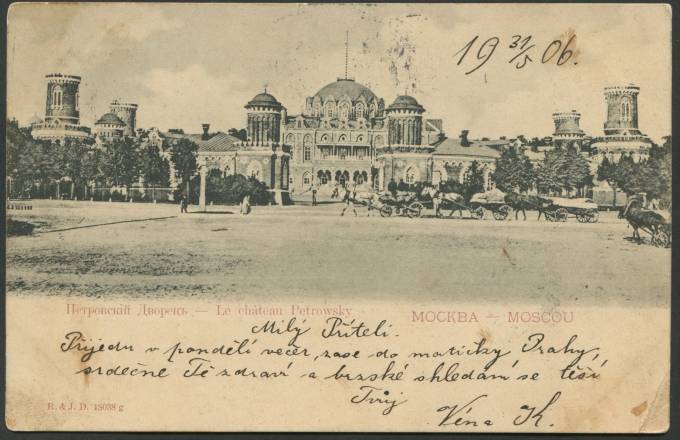 19 31/5 06.
Петровскій Дворецъ. — Le château Petrowsky
МОСКВА — MOSCOU
Milý Příteli.
Přijedu v pondělí večer, zase do matičky Prahy,
srdečně Tě zdraví a brzské shledání se těší
Tvůj
Véna K.
R. & J. D. 18038 g